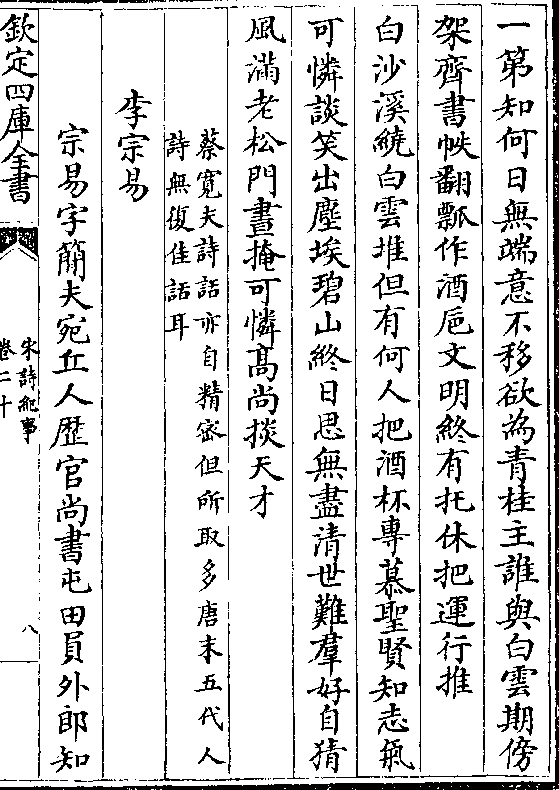 一第知何日無端意不移欲為青桂主誰與白雲期傍
架齊書帙翻瓢作酒巵文明終有托休把運行推
白沙溪繞白雲堆但有何人把酒杯專慕聖賢知志氣
可憐談笑出塵埃碧山終日思無盡清世難羣好自猜
風滿老松門晝掩可憐髙尚掞天才
蔡寛夫詩話亦自精宻但所取多唐末五代人
詩無復佳話耳
李宗易
宗易字簡夫宛丘人歴官尚書屯田員外郎知
欽定四庫全書
宋詩紀事
卷二十
八